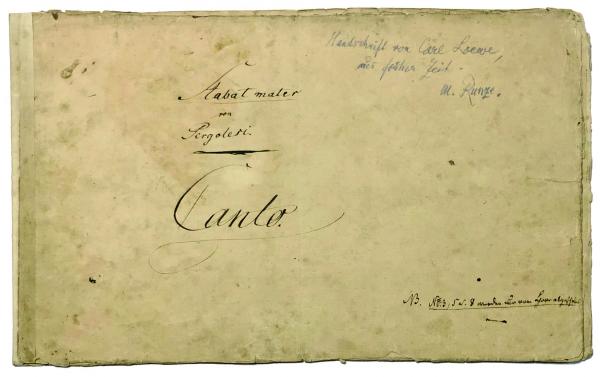 Handschrift von Carl Loewe,
aus früher Zeit.
M. Runze.
Stabat mater
von
Pergolesi.
Canto.
NB. No. 3, 5 u. 8 werden von